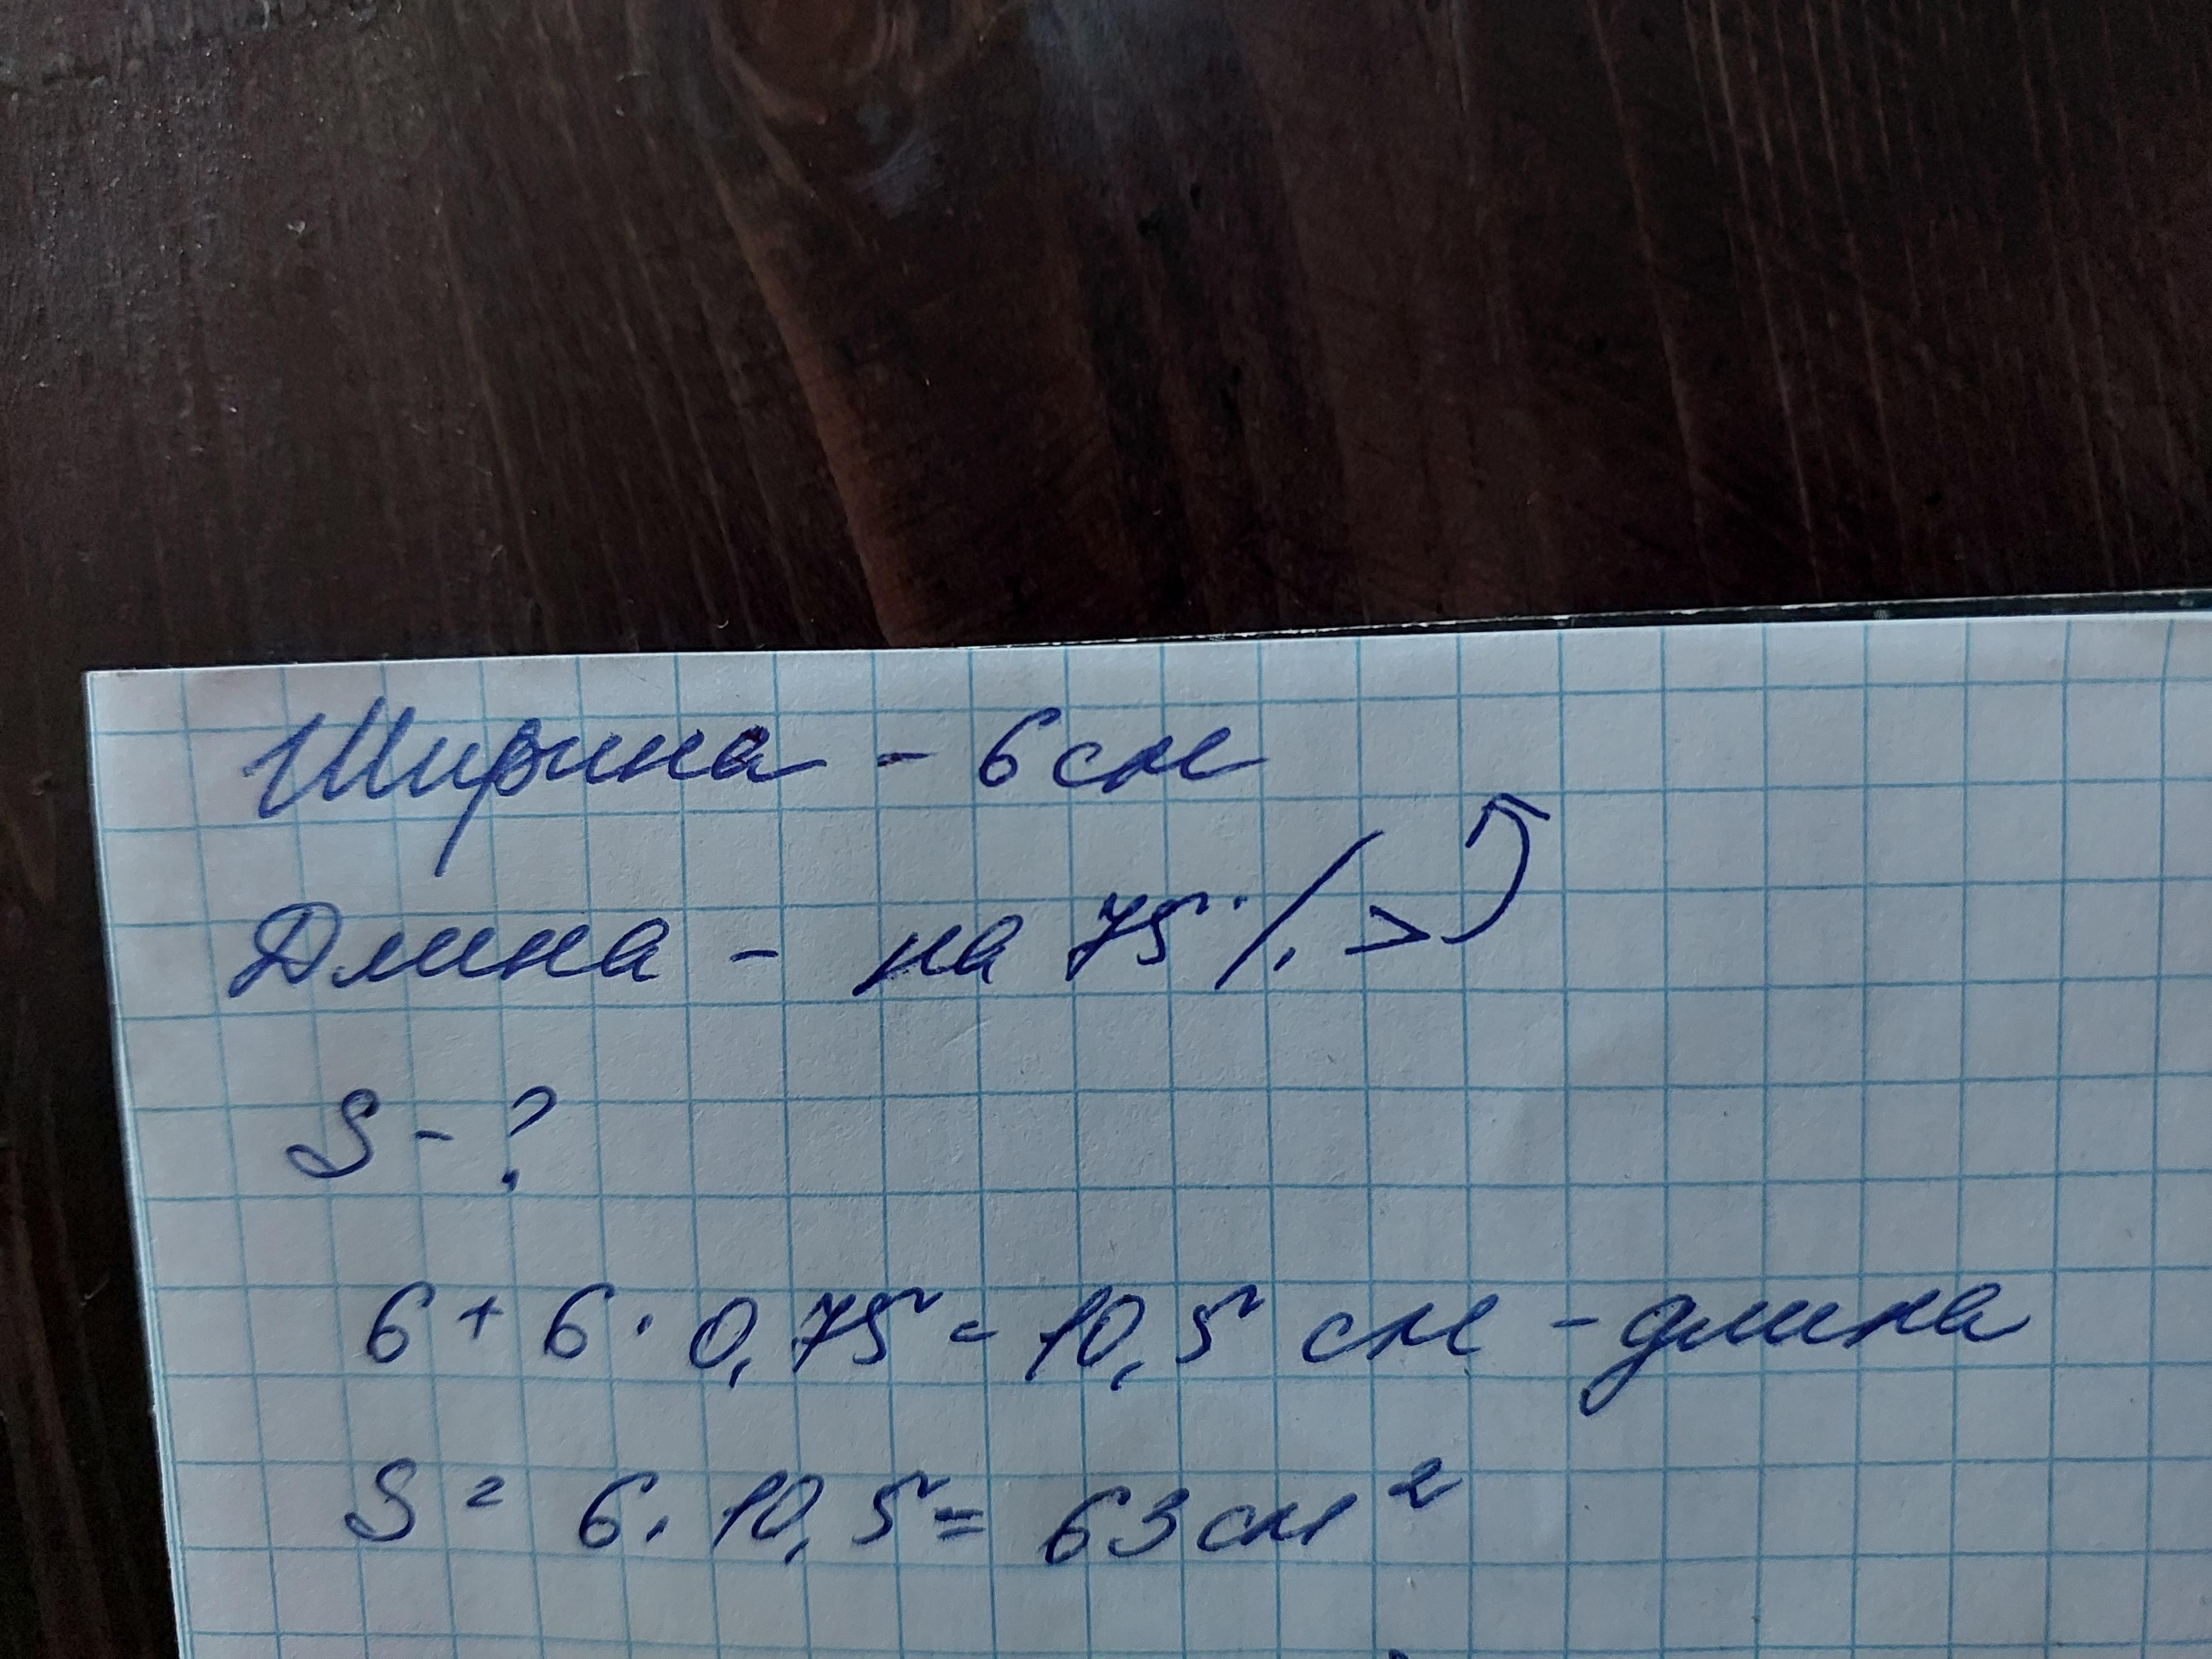 Ширина - 6 см
Длина - на 75 % >
S - ?
6 + 6 · 0,75 = 10,5 см - длина
S = 6 · 10,5 = 63 см²